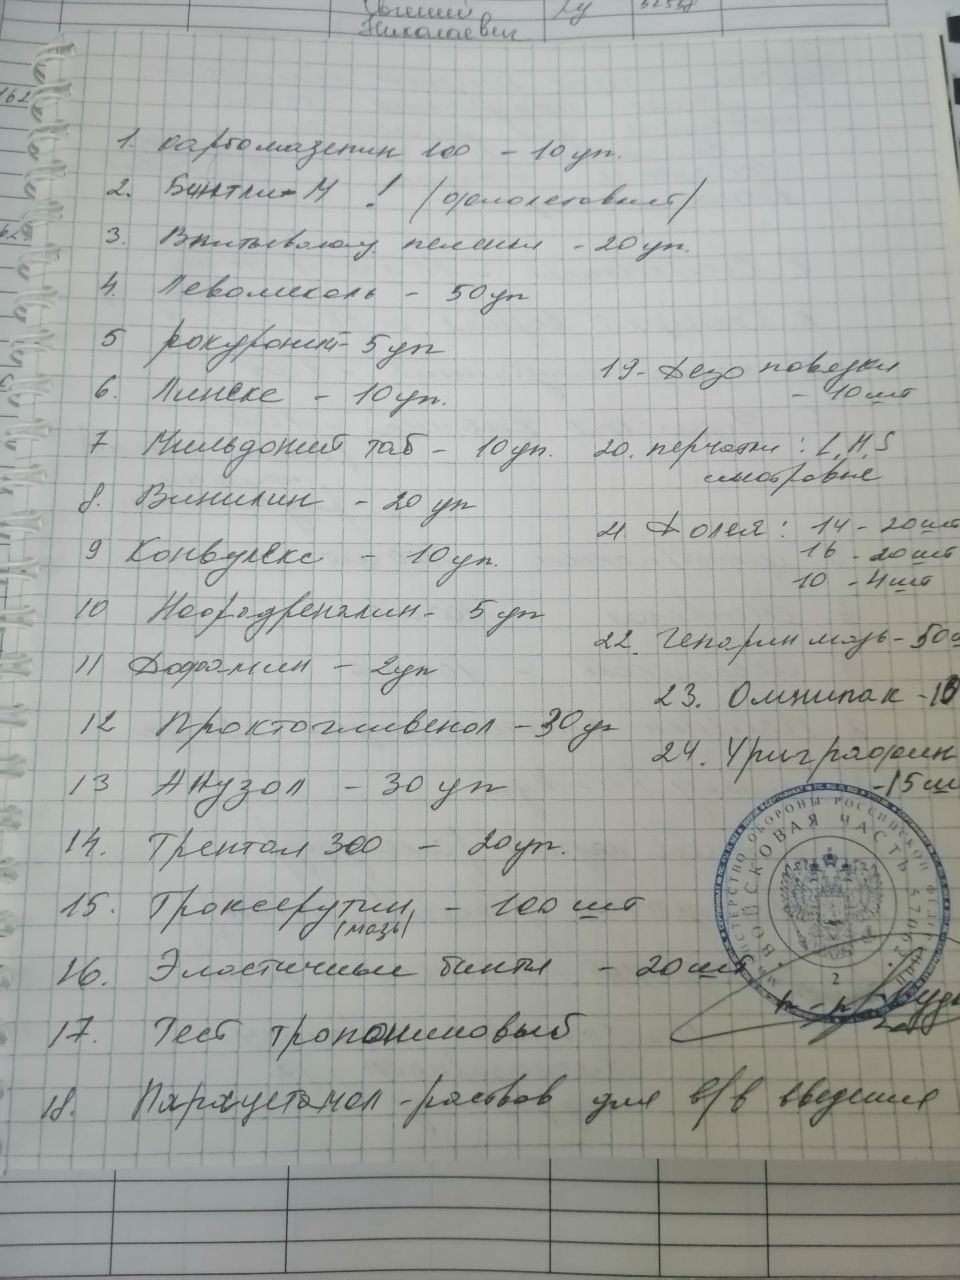 Евгений
Николаевич
162
1. карбомазепин 100 - 10 уп.
2. Бинтли-М ! (фиолетовый)
3. пеленки - 20 уп.
4. Левомеколь - 50 уп
5 рокуроний - 5 уп
6. Линекс - 10 уп.
7 Мильдоний таб - 10 уп.
8. Винилин - 20 уп
9 Конвулекс - 10 уп.
10 Норадреналин - 5 уп
11 Дофамин - 2 уп
12 Проктогливенол - 30 уп
13 Анузол - 30 уп
14. Трентал 300 - 20 уп.
15. Троксерутин - 100 шт
(мазь)
16. Эластичные бинты - 20 шт
17. Тест тропониновый
18. Парацетамол - раствор для в/в введения
19 - Дезо поведки
- 10 шт
20. перчатки: L, M, S
смотровые
21. Фолея: 14 - 20 шт
16 - 20 шт
10 - 4 шт
22. Гепарин мазь - 50
23. Омнипак - 10
24. Уриграфин
- 15 ш
МИНИСТЕРСТВО ОБОРОНЫ РОССИЙСКОЙ
ВОЙСКОВАЯ ЧАСТЬ 57062
2